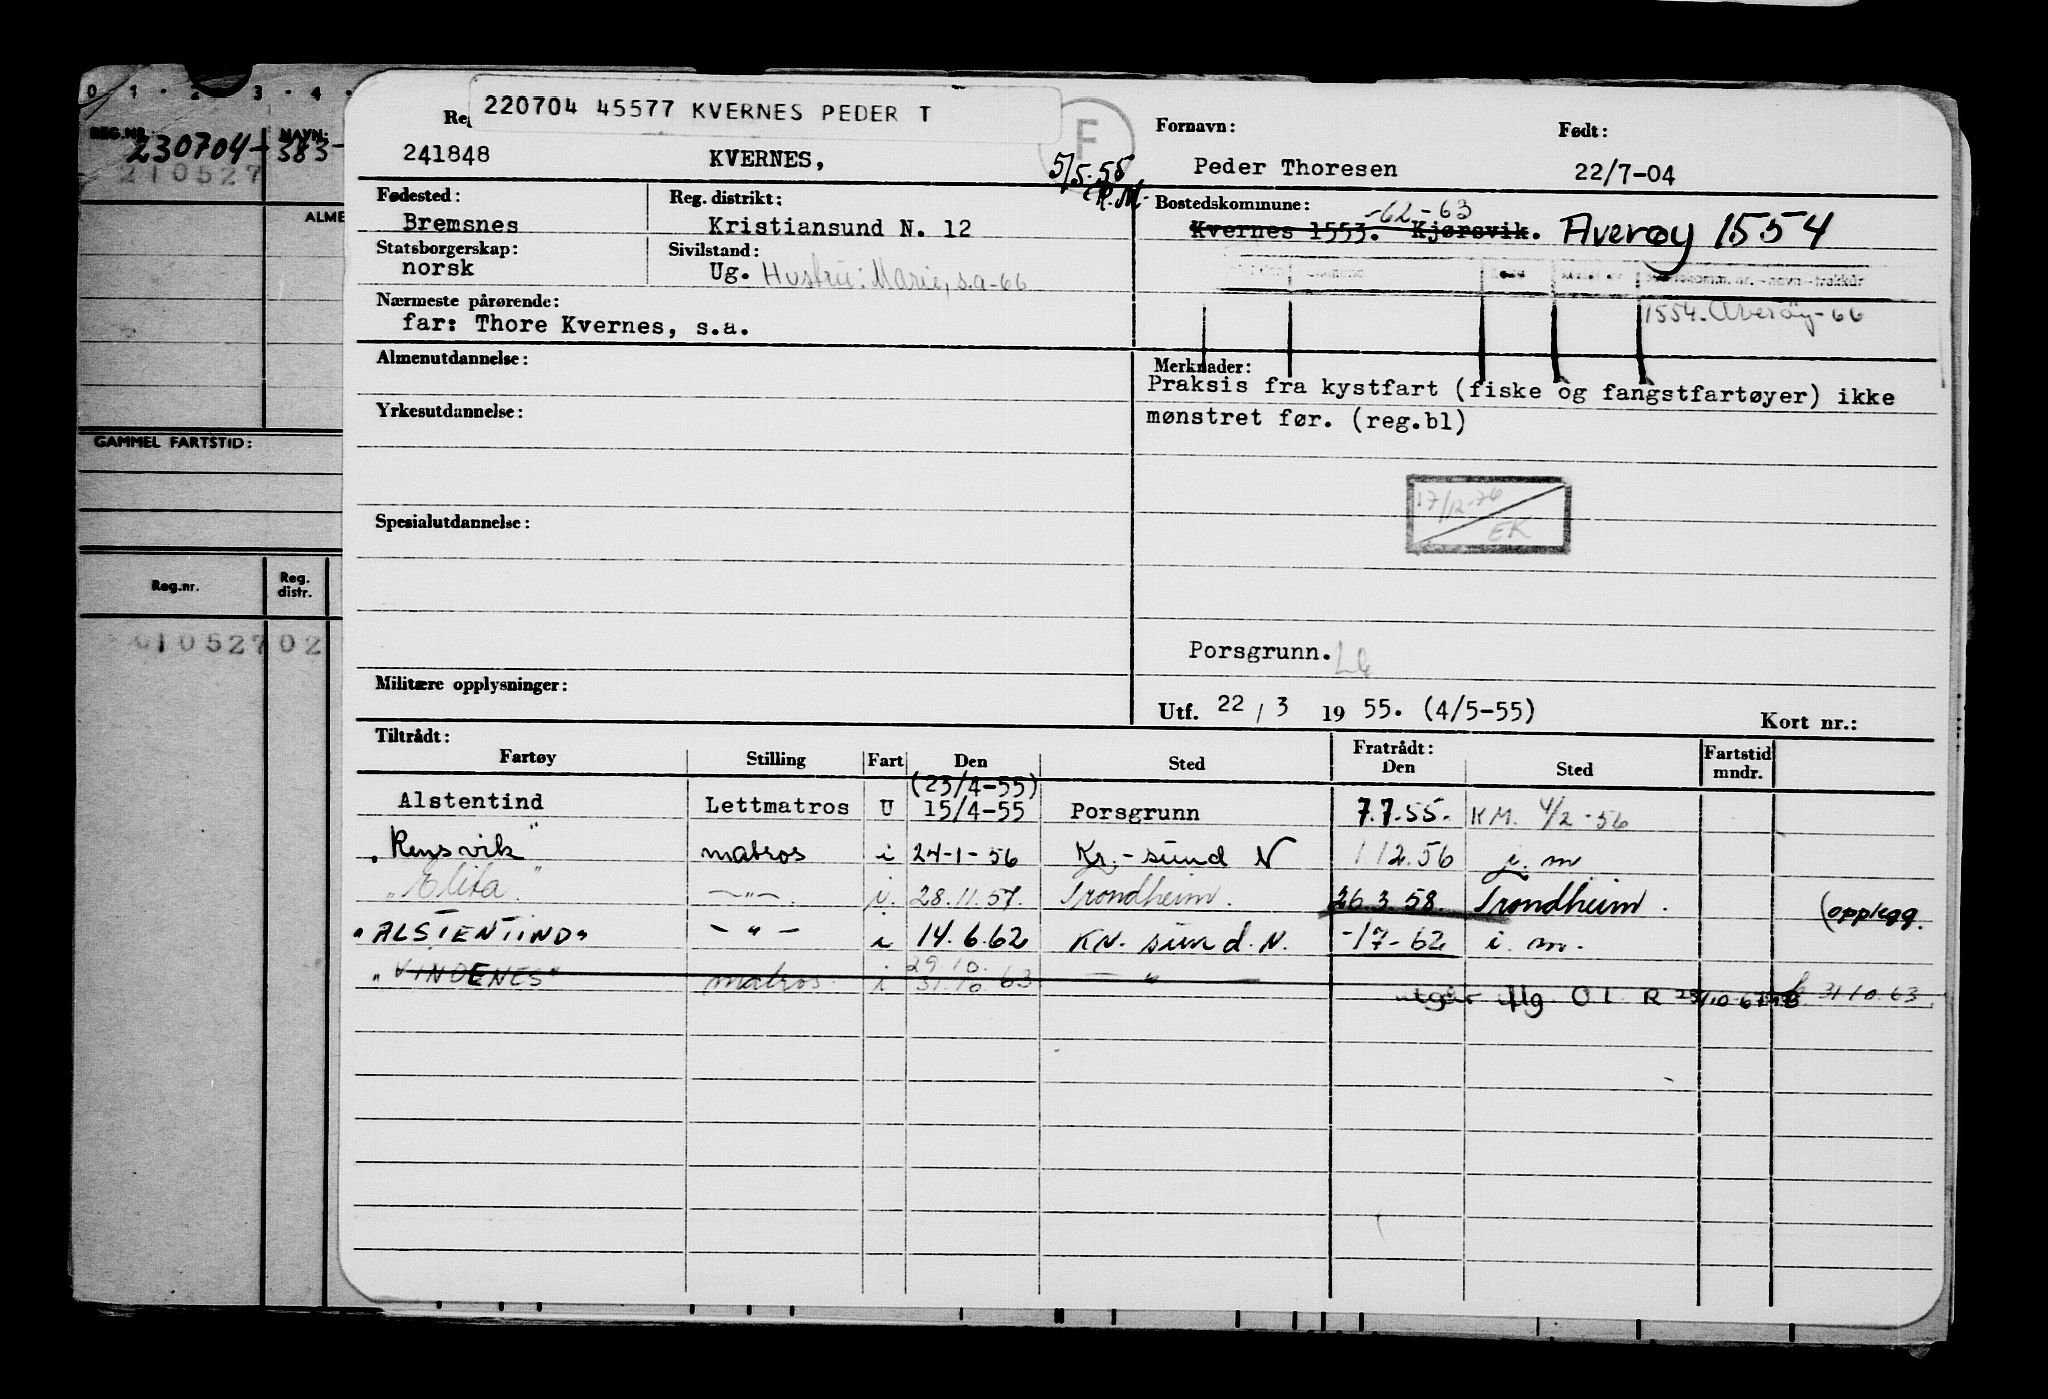 0 1 2 3 4
REG.NR. NAVN:
230704-383-
210527
ALME
GAMMEL FARTSTID:
Reg.nr. Reg. distr.
01052702
220704 45577 KVERNES PEDER T
F
Fornavn: Født:
241848 KVERNES, 5/5-55 Peder Thoresen 22/7-04
Fødested: Reg. distrikt: Bostedskommune: -62-63
Bremsnes Kristiansund N. 12 Kvernes 1553. Kjørsvik. Averøy 1554
Statsborgerskap: Sivilstand:
norsk Ug. Hustru: Marie, s.a-66
Nærmeste pårørende: 1554. Averøy-66
far: Thore Kvernes, s.a.
Almenutdannelse: Merknader:
Praksis fra kystfart (fiske og fangstfartøyer) ikke
Yrkesutdannelse: mønstret før. (reg.bl)
17/12-76
EK
Spesialutdannelse:
Porsgrunn.
Militære opplysninger:
Utf. 22 / 3 19 55. (4/5-55) Kort nr.:
Tiltrådt: Fratrådt: Fartstid
Fartøy Stilling Fart Den Sted Den Sted mndr.
(23/4-55)
Alstentind Lettmatros U 15/4-55 Porsgrunn 7.7.55. KM. 4/2-56
"Rensvik" matros i 24-1-56 Kr.-sund N 112.56 i. m
"Elita" -"- i. 28.11.57. Trondheim. 26.3.58. Trondheim. (opplegg.
"ALSTENTIND" -"- i 14.6.62 KR. sund. N. -17-62 i. m.
29.10.
"VINDENES" matros i 31.10 63 -"- 31 10.63